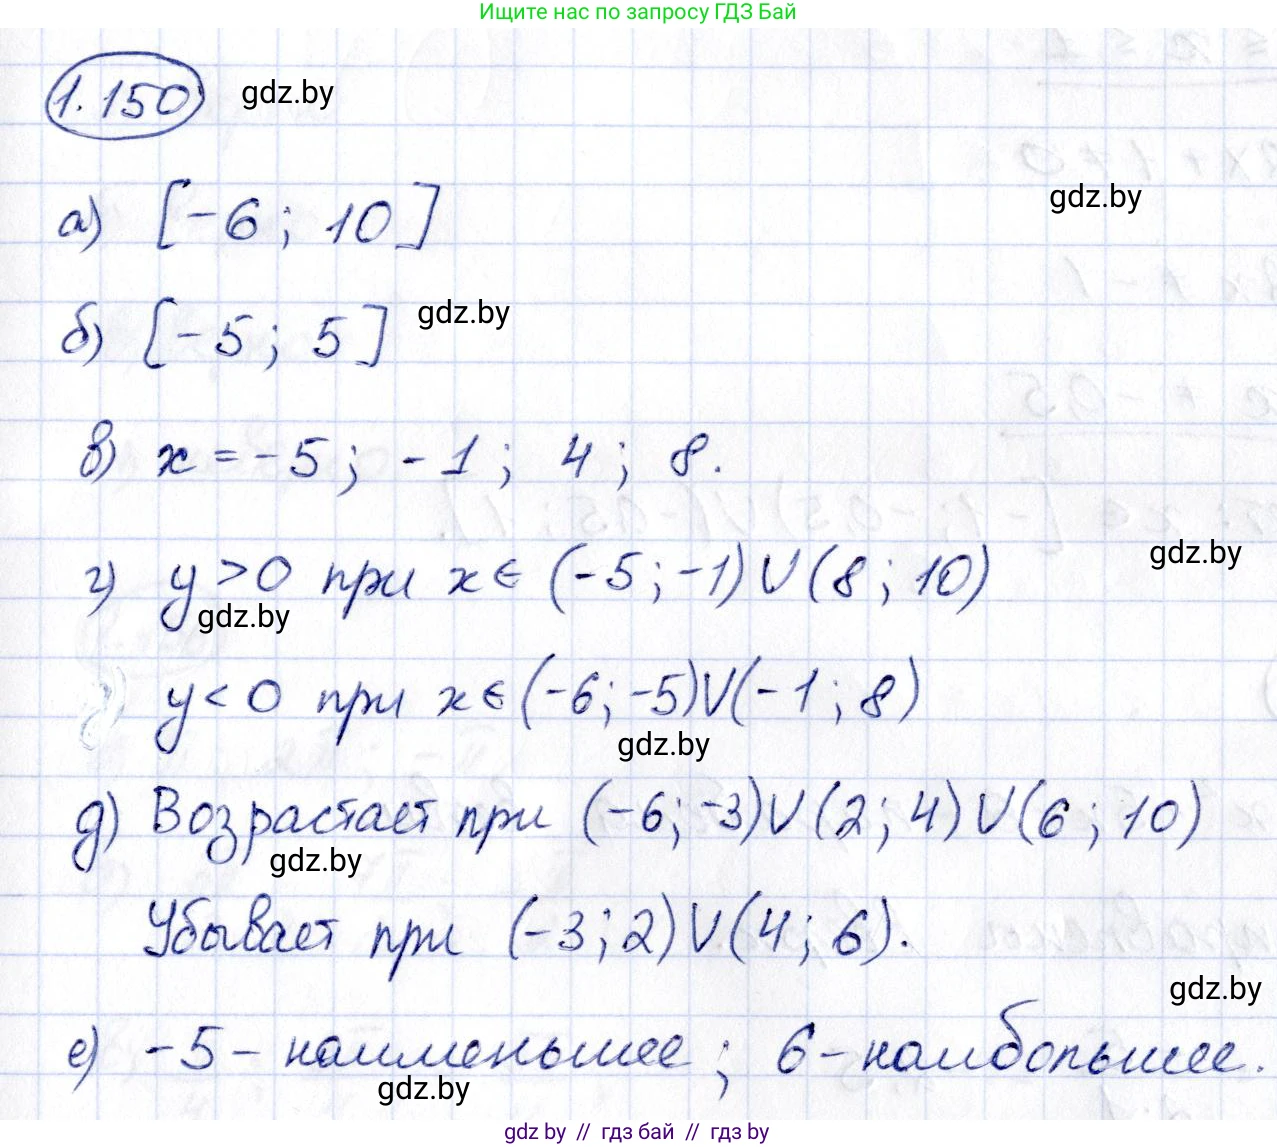 Ищите нас по запросу ГДЗ Бай
1.150 gdz.by
а) [-6; 10]
gdz.by
б) [-5; 5] gdz.by
в) x = -5; -1; 4; 8.
г) y > 0 при x ∈ (-5; -1) ∪ (8; 10) gdz.by
gdz.by
y < 0 при x ∈ (-6; -5) ∪ (-1; 8)
gdz.by
д) Возрастает при (-6; -3) ∪ (2; 4) ∪ (6; 10)
gdz.by
Убывает при (-3; 2) ∪ (4; 6).
gdz.by
е) -5 - наименьшее; 6 - наибольшее.
gdz.by
gdz.by // гдз бай // гдз by